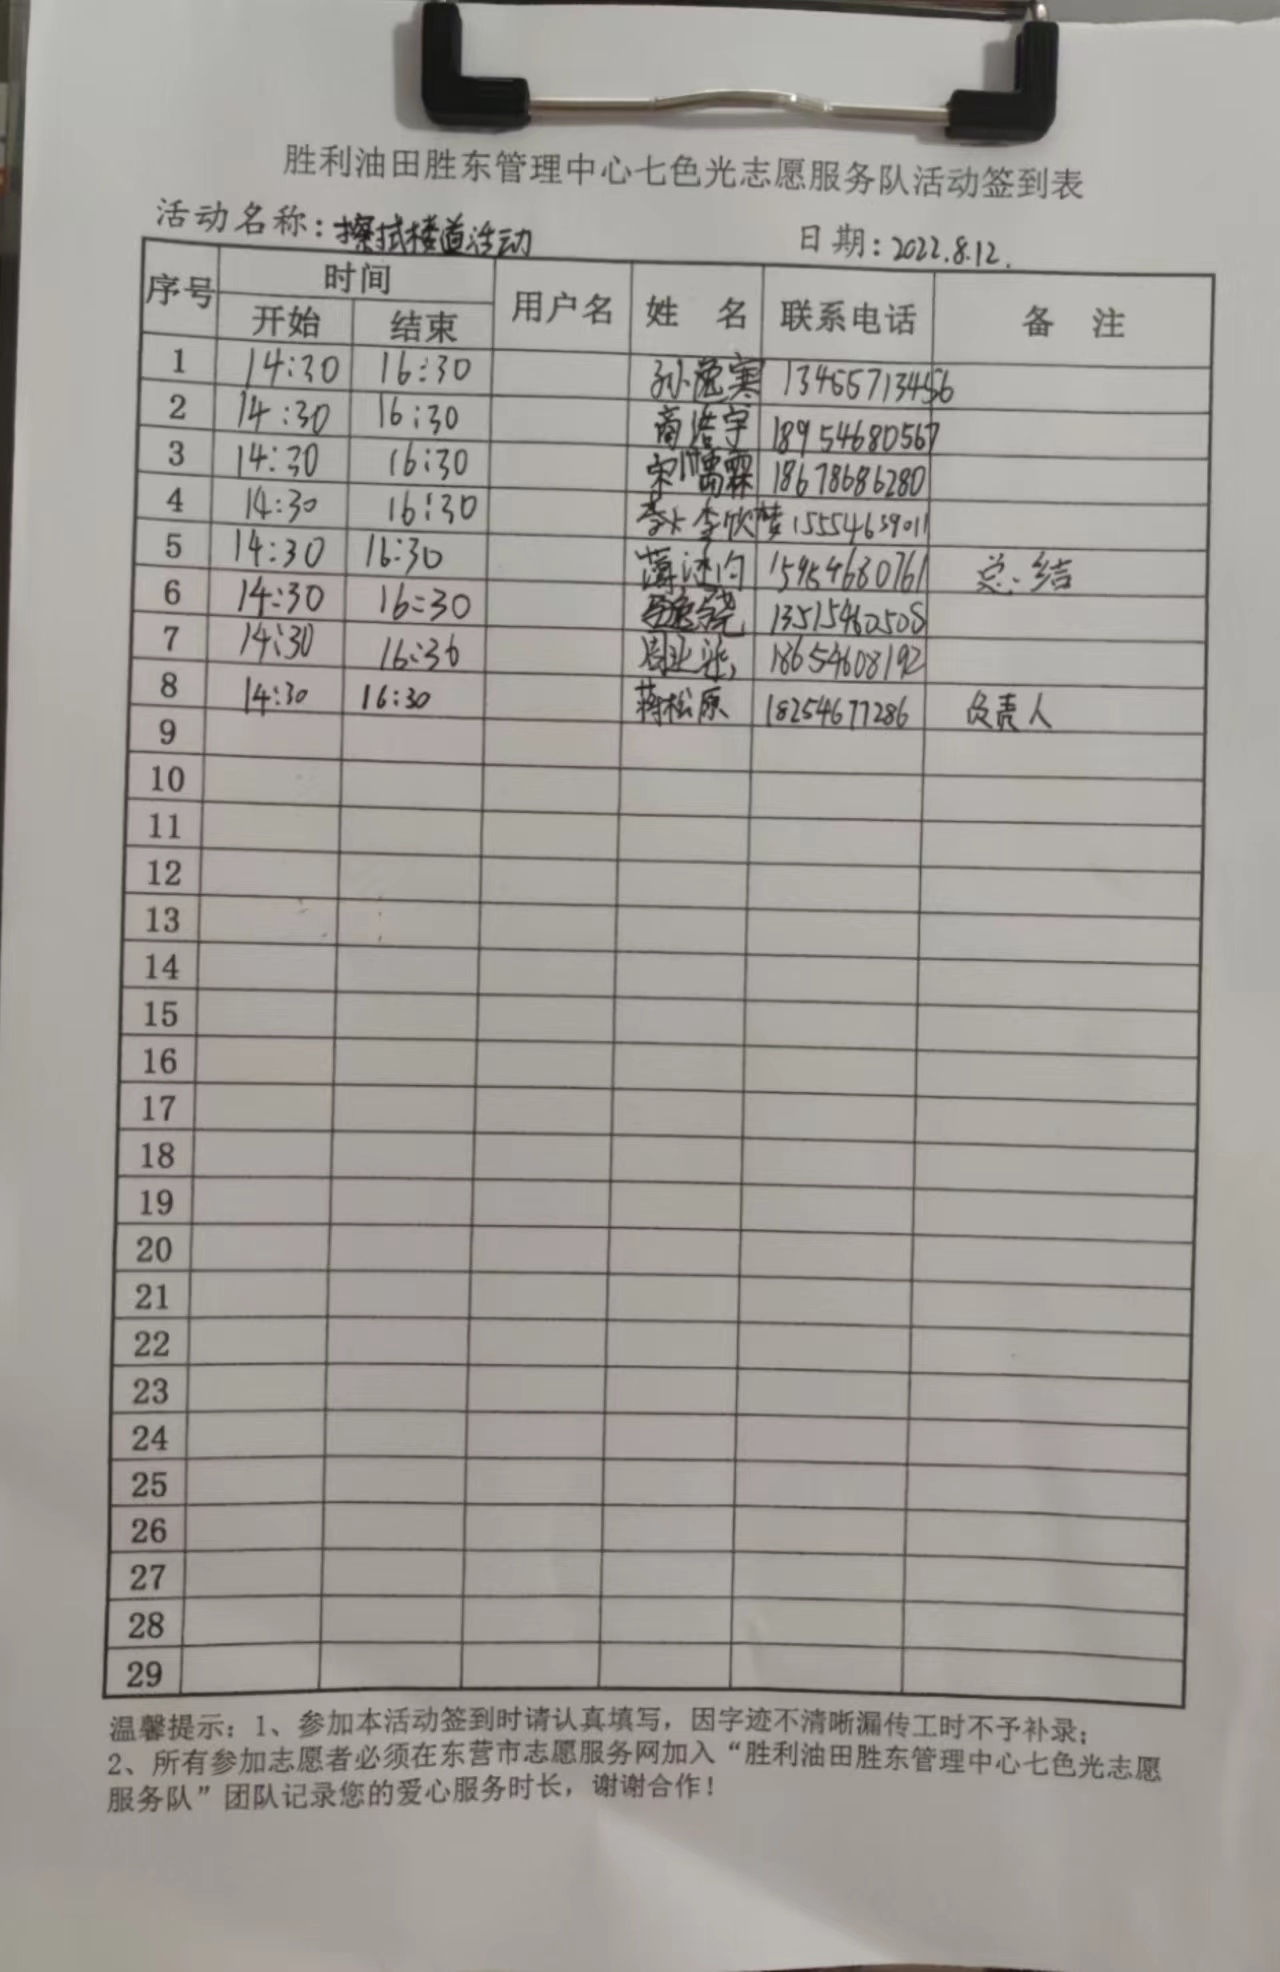 胜利油田胜东管理中心七色光志愿服务队活动签到表
活动名称：擦拭楼道活动 日期：2022.8.12.
序号 时间 用户名 姓 名 联系电话 备 注
开始 结束
1 14:30 16:30 孙逸寒 13455713456
2 14:30 16:30 商浩宇 18954680567
3 14:30 16:30 宋 霖 18678686280
4 14:30 16:30 李欣梦 15554639011
5 14:30 16:30 15954680761 总结
6 14:30 16:30 13515460508
7 14:30 16:30 18654608192
8 14:30 16:30 蒋松原 18254677286 负责人
9
10
11
12
13
14
15
16
17
18
19
20
21
22
23
24
25
26
27
28
29
温馨提示：1、参加本活动签到时请认真填写，因字迹不清晰漏传工时不予补录；
2、所有参加志愿者必须在东营市志愿服务网加入“胜利油田胜东管理中心七色光志愿
服务队”团队记录您的爱心服务时长，谢谢合作！